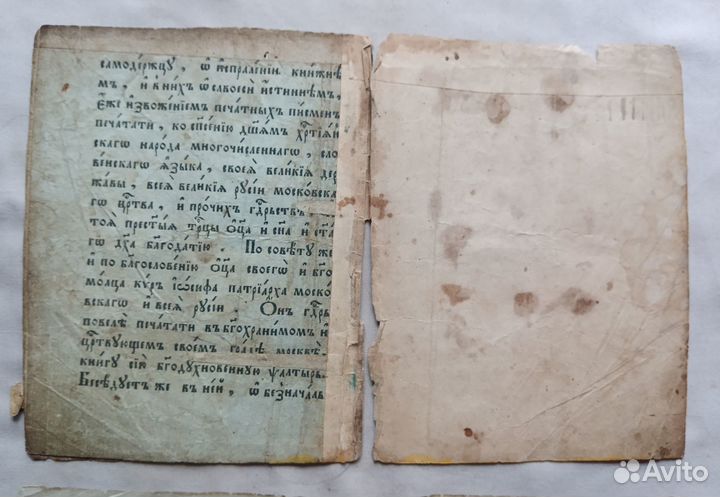 самоде́ржцу, ѿ и҆справле́нїи кни́жнѣ
мъ, и҆ в ни́хъ ѿ и҆́стиннѣмъ,
Є҆́же и҆зволе́нїемъ печа́тныхъ пи́сменъ
печа́тати, ко спсе́нїю дш҃а́мъ хрⷭ҇тїа́н
скагѡ наро́да многочи́сленнагѡ, сло
ве́нскагѡ ꙗ҆зы́ка, своеѧ̀ вели́кїѧ дер
жа́вы, всеѧ̀ вели́кїѧ рꙋсі́и моско́вска
гѡ црⷭ҇тва, и҆ про́чихъ гдⷭ҇рьствъ
тоѧ̀ престы́ѧ трⷪ҇цы ѻ҆ц҃а̀ и҆ сн҃а и҆ ст҃а́
гѡ дх҃а бл҃года́тїю. По совѣ́тꙋ же
и҆ по бл҃гослове́нїю ѻ҆ц҃а̀ своегѡ̀ и҆ бг҃о
мо́лца кѵ́ръ і҆ѡ́сифа патрїа́рха моско́
вскагѡ и҆ всеѧ̀ рꙋсі́и. Ѻ҆́нъ гдⷭ҇рь
повелѣ̀ печа́тати въ бг҃охрани́момъ и҆
црⷭ҇твꙋющемъ свое́мъ гра́дѣ москвѣ̀.
кни́гꙋ сїю̀ бг҃одꙋхнове́ннꙋю ѱалты́рь.
Бесѣ́дꙋетъ же в не́й, ѿ безнача́лнѣ
Avito